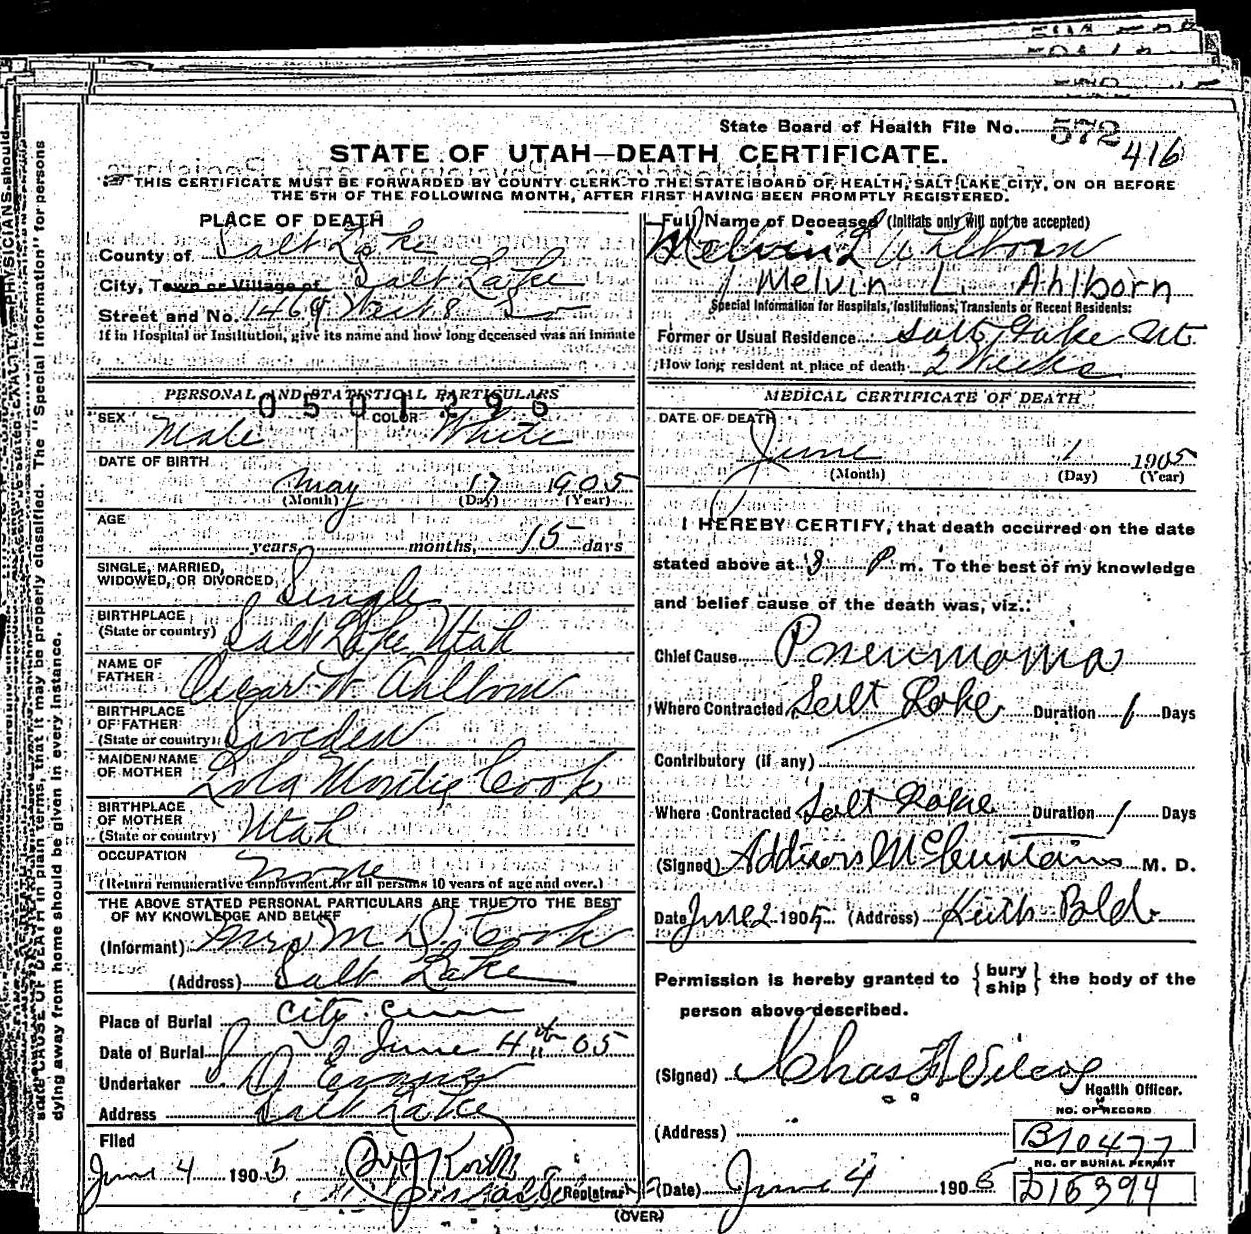 State Board of Health File No. 572
416
STATE OF UTAH—DEATH CERTIFICATE.
THIS CERTIFICATE MUST BE FORWARDED BY COUNTY CLERK TO THE STATE BOARD OF HEALTH, SALT LAKE CITY, ON OR BEFORE
THE 5TH OF THE FOLLOWING MONTH, AFTER FIRST HAVING BEEN PROMPTLY REGISTERED.
PLACE OF DEATH
County of Salt Lake
City, Town or Village of Salt Lake
Street and No. 1469 West 8 So
If in Hospital or Institution, give its name and how long deceased was an inmate
PERSONAL AND STATISTICAL PARTICULARS
0501296
SEX Male COLOR White
DATE OF BIRTH
May 17 1905
(Month) (Day) (Year)
AGE
years months, 15 days
SINGLE, MARRIED,
WIDOWED, OR DIVORCED Single
BIRTHPLACE
(State or country) Salt Lake Utah
NAME OF
FATHER Oscar W Ahlborn
BIRTHPLACE
OF FATHER
(State or country) Sweden
MAIDEN NAME
OF MOTHER Lola Cook
BIRTHPLACE
OF MOTHER
(State or country) Utah
OCCUPATION none
(Return remunerative employment for all persons 10 years of age and over.)
THE ABOVE STATED PERSONAL PARTICULARS ARE TRUE TO THE BEST
OF MY KNOWLEDGE AND BELIEF
(Informant) Mrs M D. Cook
(Address) Salt Lake
Place of Burial City Cem
Date of Burial June 4th 05
Undertaker S. D. Evans
Address Salt Lake
Filed
June 4 1905
Registrar
Full Name of Deceased (Initials only will not be accepted)
Melvin L Ahlborn
Melvin L. Ahlborn
Special Information for Hospitals, Institutions, Transients or Recent Residents:
Former or Usual Residence Salt Lake Ut.
How long resident at place of death 2 Weeks
MEDICAL CERTIFICATE OF DEATH
DATE OF DEATH
June 1 1905
(Month) (Day) (Year)
I HEREBY CERTIFY, that death occurred on the date
stated above at 3 P. m. To the best of my knowledge
and belief cause of the death was, viz.:
Chief Cause Pneumonia
Where Contracted Salt Lake Duration 1 Days
Contributory (if any)
Where Contracted Salt Lake Duration 1 Days
(Signed) Addison M. D.
Date June 2 1905 (Address) Keith Bld.
Permission is hereby granted to { bury ship } the body of the
person above described.
(Signed) Chas F Wilcox
Health Officer.
NO. OF RECORD
(Address) B10477
NO. OF BURIAL PERMIT
(Date) June 4 1905 D15394
(OVER)
said CAUSE OF DEATH in plain terms, that it may be properly classified. The "Special Information" for persons
dying away from home should be given in every instance.